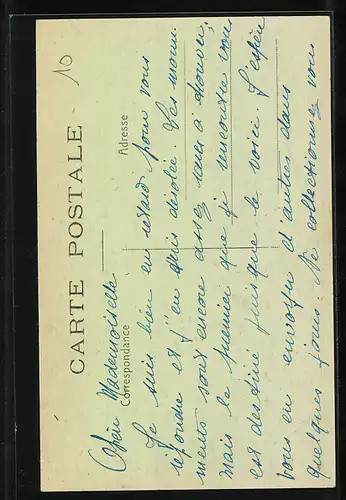 10
CARTE POSTALE
Correspondance
Adresse
Chère Mademoiselle
Je suis bien en retard pour vous
répondre et j'en suis désolée. Les monu-
ments sont encore assez rares à trouver,
mais le premier que je rencontre vous
est destiné puisque le voici. J'espère
vous en envoyer d'autres dans
quelques jours. Ne collectionnez vous